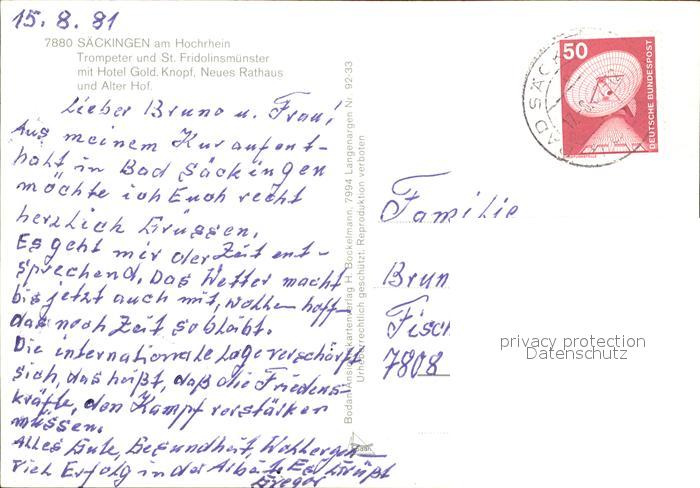 15. 8. 81
7880 SÄCKINGEN am Hochrhein
Trompeter und St. Fridolinsmünster
mit Hotel Gold. Knopf, Neues Rathaus
und Alter Hof.
Lieber Bruno u. Frau!
Aus meinem Kuraufent-
halt in Bad Säckingen
möchte ich Euch recht
herzlich Grüssen.
Es geht mir der Zeit ent-
sprechend. Das Wetter macht
bis jetzt auch mit, wollen hoffen
das noch Zeit so bleibt.
Die internationale Lage verschärft
sich, das heißt, daß die Friedens-
kräfte, den Kampf verstärken
müssen.
Alles Gute, Gesundheit, Wohlergehen
viel Erfolg in der Arbeit. Es Grüßt
Gregor
Bodan-Ansichtskartenverlag H. Bockelmann, 7994 Langenargen Nr. 92-33
Urheberrechtlich geschützt. Reproduktion verboten
BAD SÄCK
50
DEUTSCHE BUNDESPOST
Familie
Brun
Fisch
7808
privacy protection
Datenschutz